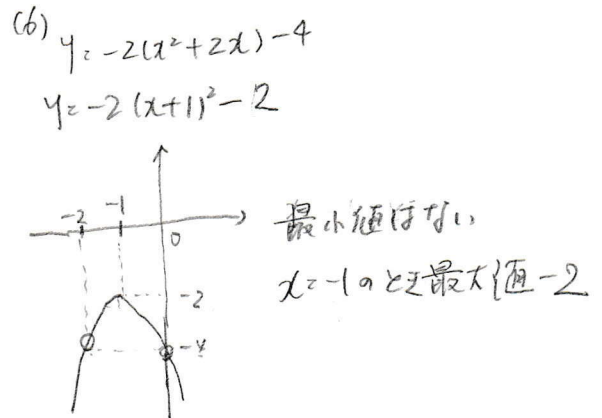 (6)
y=-2(x²+2x)-4
y=-2(x+1)²-2
-2 -1
0
最小値はない
-2
x=-1のとき最大値-2
-4